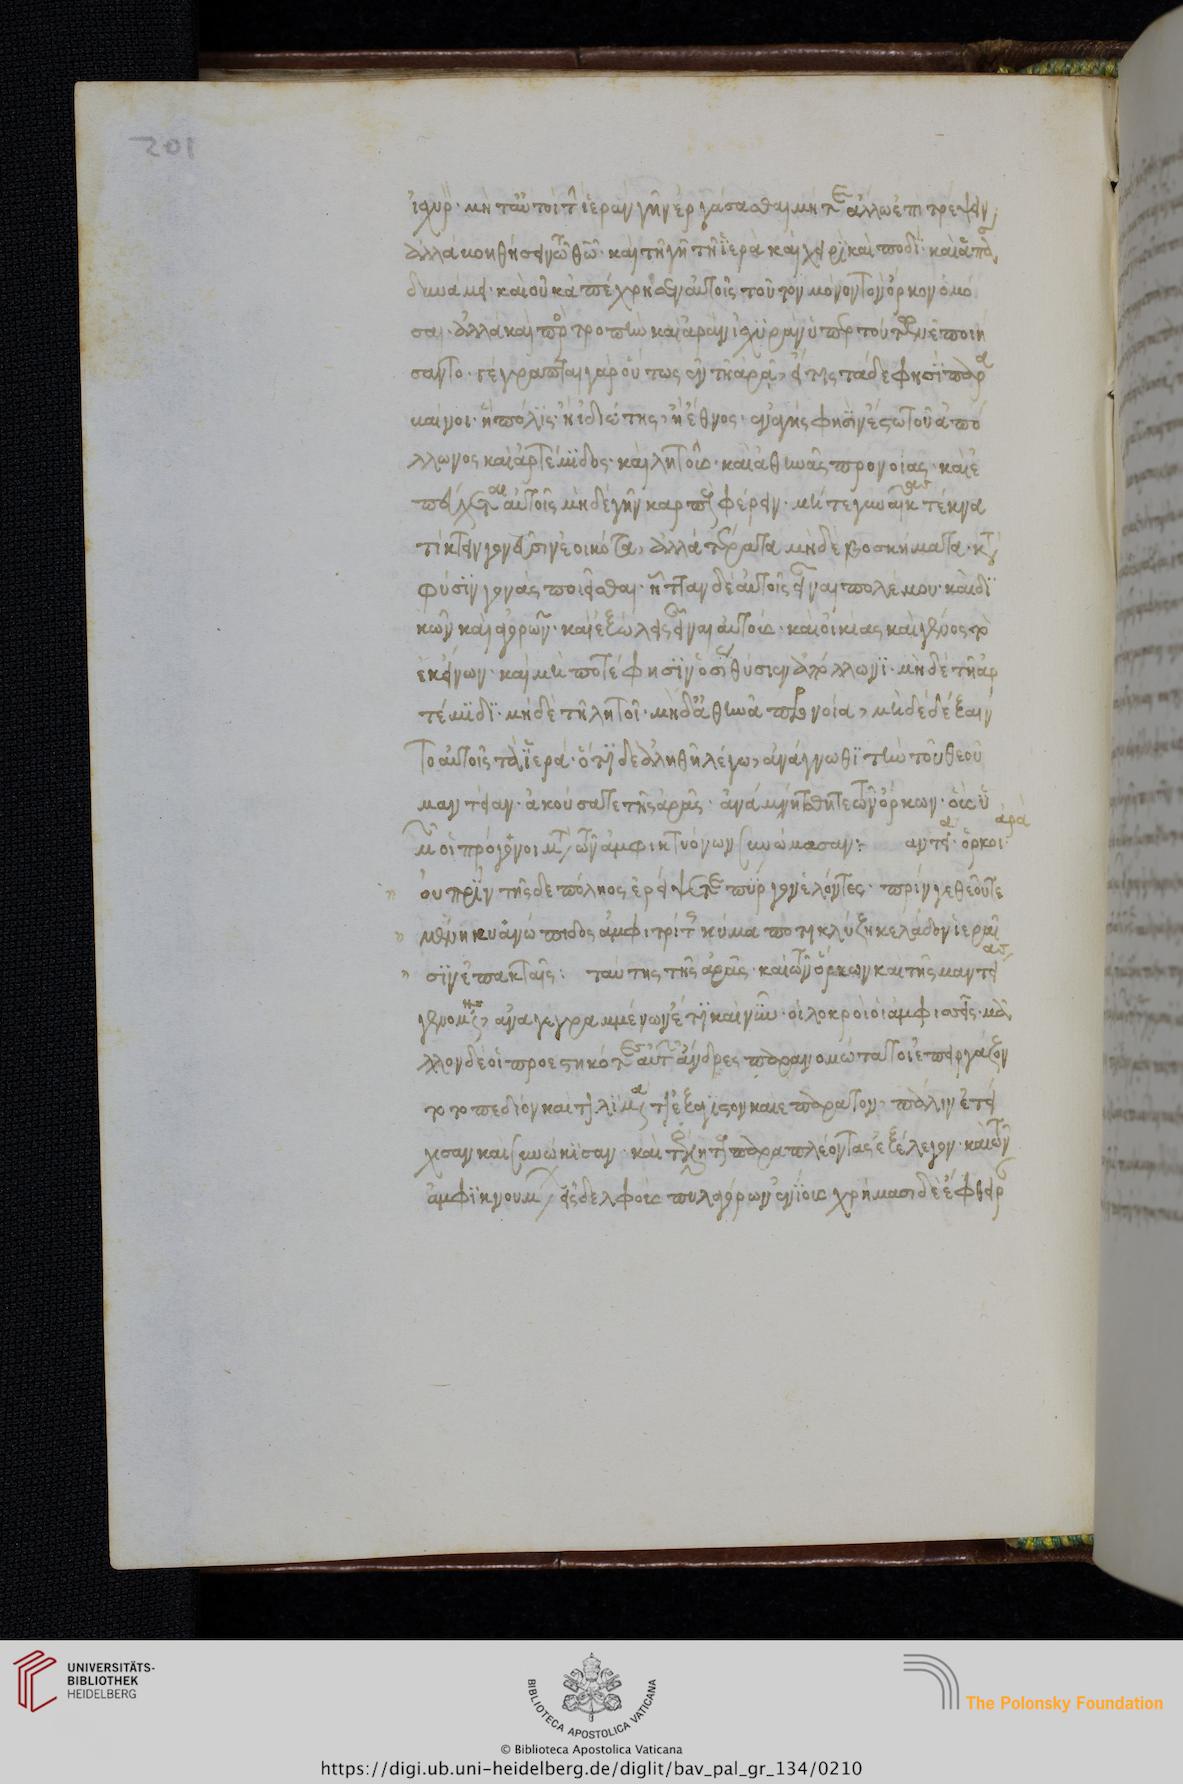 ἰσχυρ· μὴ τ' αὐτοὶ τ ἱερὰν γῆν ἐργάσασθαι μήτε ἄλλω ἐπιτρέψειν,
ἀλλὰ βοηθήσειν τῶ θεῶ· καὶ τῆ γῆ τῆ ἱερᾶ καὶ χειρὶ καὶ ποδὶ· καὶ ἁπά
δυνάμει· καὶ οὐκ ἀπέχρησεν αὐτοῖς τοῦτον μόνον τὸν ὅρκον ὀμό
σαι· ἀλλὰ καὶ προστροπὴν καὶ ἀρὰν ἰσχυρὰν ὑπὲρ τούτων ἐποιή
σαντο· γέγραπται γὰρ οὕτως ἐν τῆ ἀρᾶ, εἴ τις τάδε φησὶ παρα
βαίνοι· ἢ πόλις· ἢ ἰδιώτης, ἢ ἔθνος· ἐναγής φησὶν ἔστω τοῦ ἀπό
λλωνος καὶ ἀρτέμιδος· καὶ λητοῦς· καὶ ἀθηνᾶς προνοίας· καὶ ἐ
πεύχεται αὐτοῖς μηδὲ γῆν καρποὺς φέρειν· μήτε γυναῖκας τέκνα
τίκτειν γονεῦσιν ἐοικότα, ἀλλὰ τέρατα μηδὲ βοσκήματα· κατὰ
φύσιν γονὰς ποιεῖσθαι· ἧτταν δὲ αὐτοῖς εἶναι πολέμου· καὶ δι
κῶν καὶ ἀγορῶν· καὶ ἐξώλεις εἶναι αὐτοὺς· καὶ οἰκίας καὶ γένος τὸ
ἐκείνων· καὶ μή ποτέ φησὶν ὁσίως θύσιεν ἀπόλλωνι· μηδὲ τῆ ἀρ
τέμιδι· μηδὲ τῆ λητοῖ· μηδ' ἀθηνᾶ προνοία, μηδὲ δέξαιν
το αὐτοῖς τὰ ἱερά· ὅτι δὲ ἀληθῆ λέγω, ἀνάγνωθι τὴν τοῦ θεοῦ
μαντείαν· ἀκούσατε τῆς ἀρᾶς· ἀνάμνήσθητε τῶν ὅρκων· οὓς ὑ
μῶν οἱ πρόγονοι μετὰ τῶν ἀμφικτυόνων συνώμοσαν: μαντεία· ὅρκοι· ἀρά
οὐ πρὶν τῆσδε πόληος ἐρείψετε πύργον ἑλόντες· πρίν γε θεοῦ τε
μένη κυανώπιδος ἀμφιτρίτης κῦμα ποτικλύζη κελάδον ἱεραῖ
σιν ἐπ' ἀκταῖς: ταύτης τῆς ἀρᾶς· καὶ τῶν ὅρκων καὶ τῆς μαντείας
γενομένης, ἀναγεγραμμένων ἔτι καὶ νῦν· οἱ λοκροὶ οἱ ἀμφισσεῖς· μᾶ
λλον δὲ οἱ προεστηκότες αὐτῶν ἄνδρες παρανομώτατοι ἐπειργάζον
το τὸ πεδίον καὶ τὸν λιμένα τὸν ἐξάγιστον καὶ ἐπάρατον· πάλιν ἐτεί
χισαν καὶ συνώκισαν· καὶ τέλη τοὺς παραπλέοντας ἐξέλεγον· καὶ τῶν
ἀφικνουμένων εἰς δελφοὺς πυλαγόρων ἐνίους χρήμασι διέφθειρ
201
UNIVERSITÄTS-
BIBLIOTHEK
HEIDELBERG
BIBLIOTECA APOSTOLICA VATICANA
The Polonsky Foundation
© Biblioteca Apostolica Vaticana
https://digi.ub.uni-heidelberg.de/diglit/bav_pal_gr_134/0210